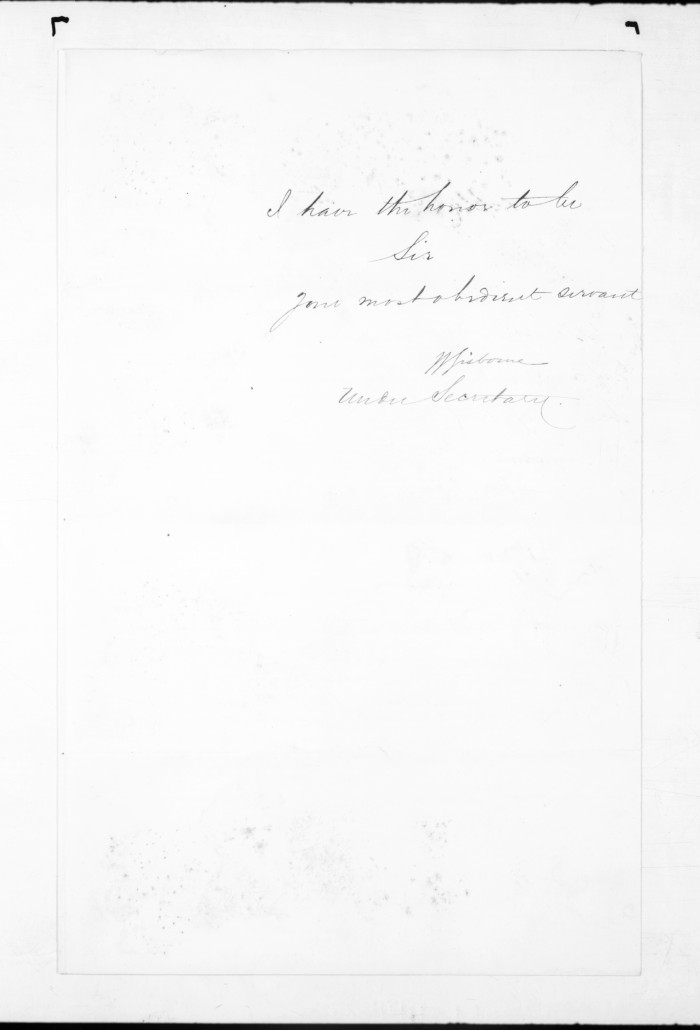 I have the honor to be
Sir
Your most obedient servant
W Gisborne
Under Secretary.